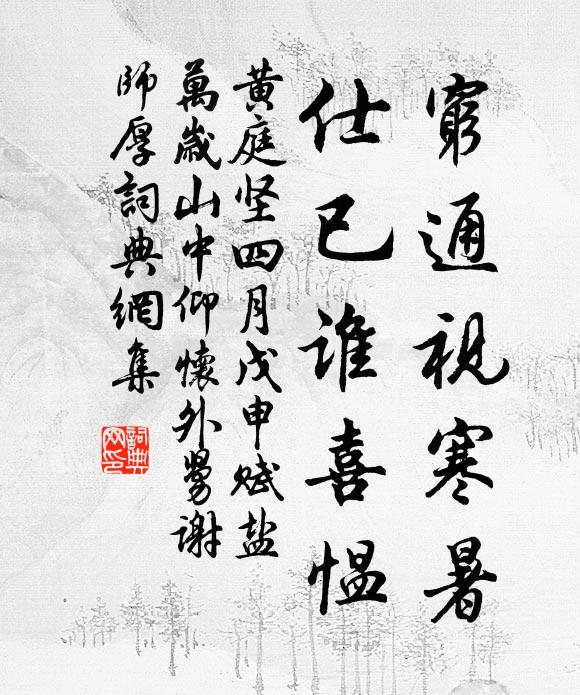 窮通視寒暑
仕已誰喜愠
黄庭坚四月戊申赋盐
萬歲山中仰懷外舅谢
師厚詞典網集
詞典
网印